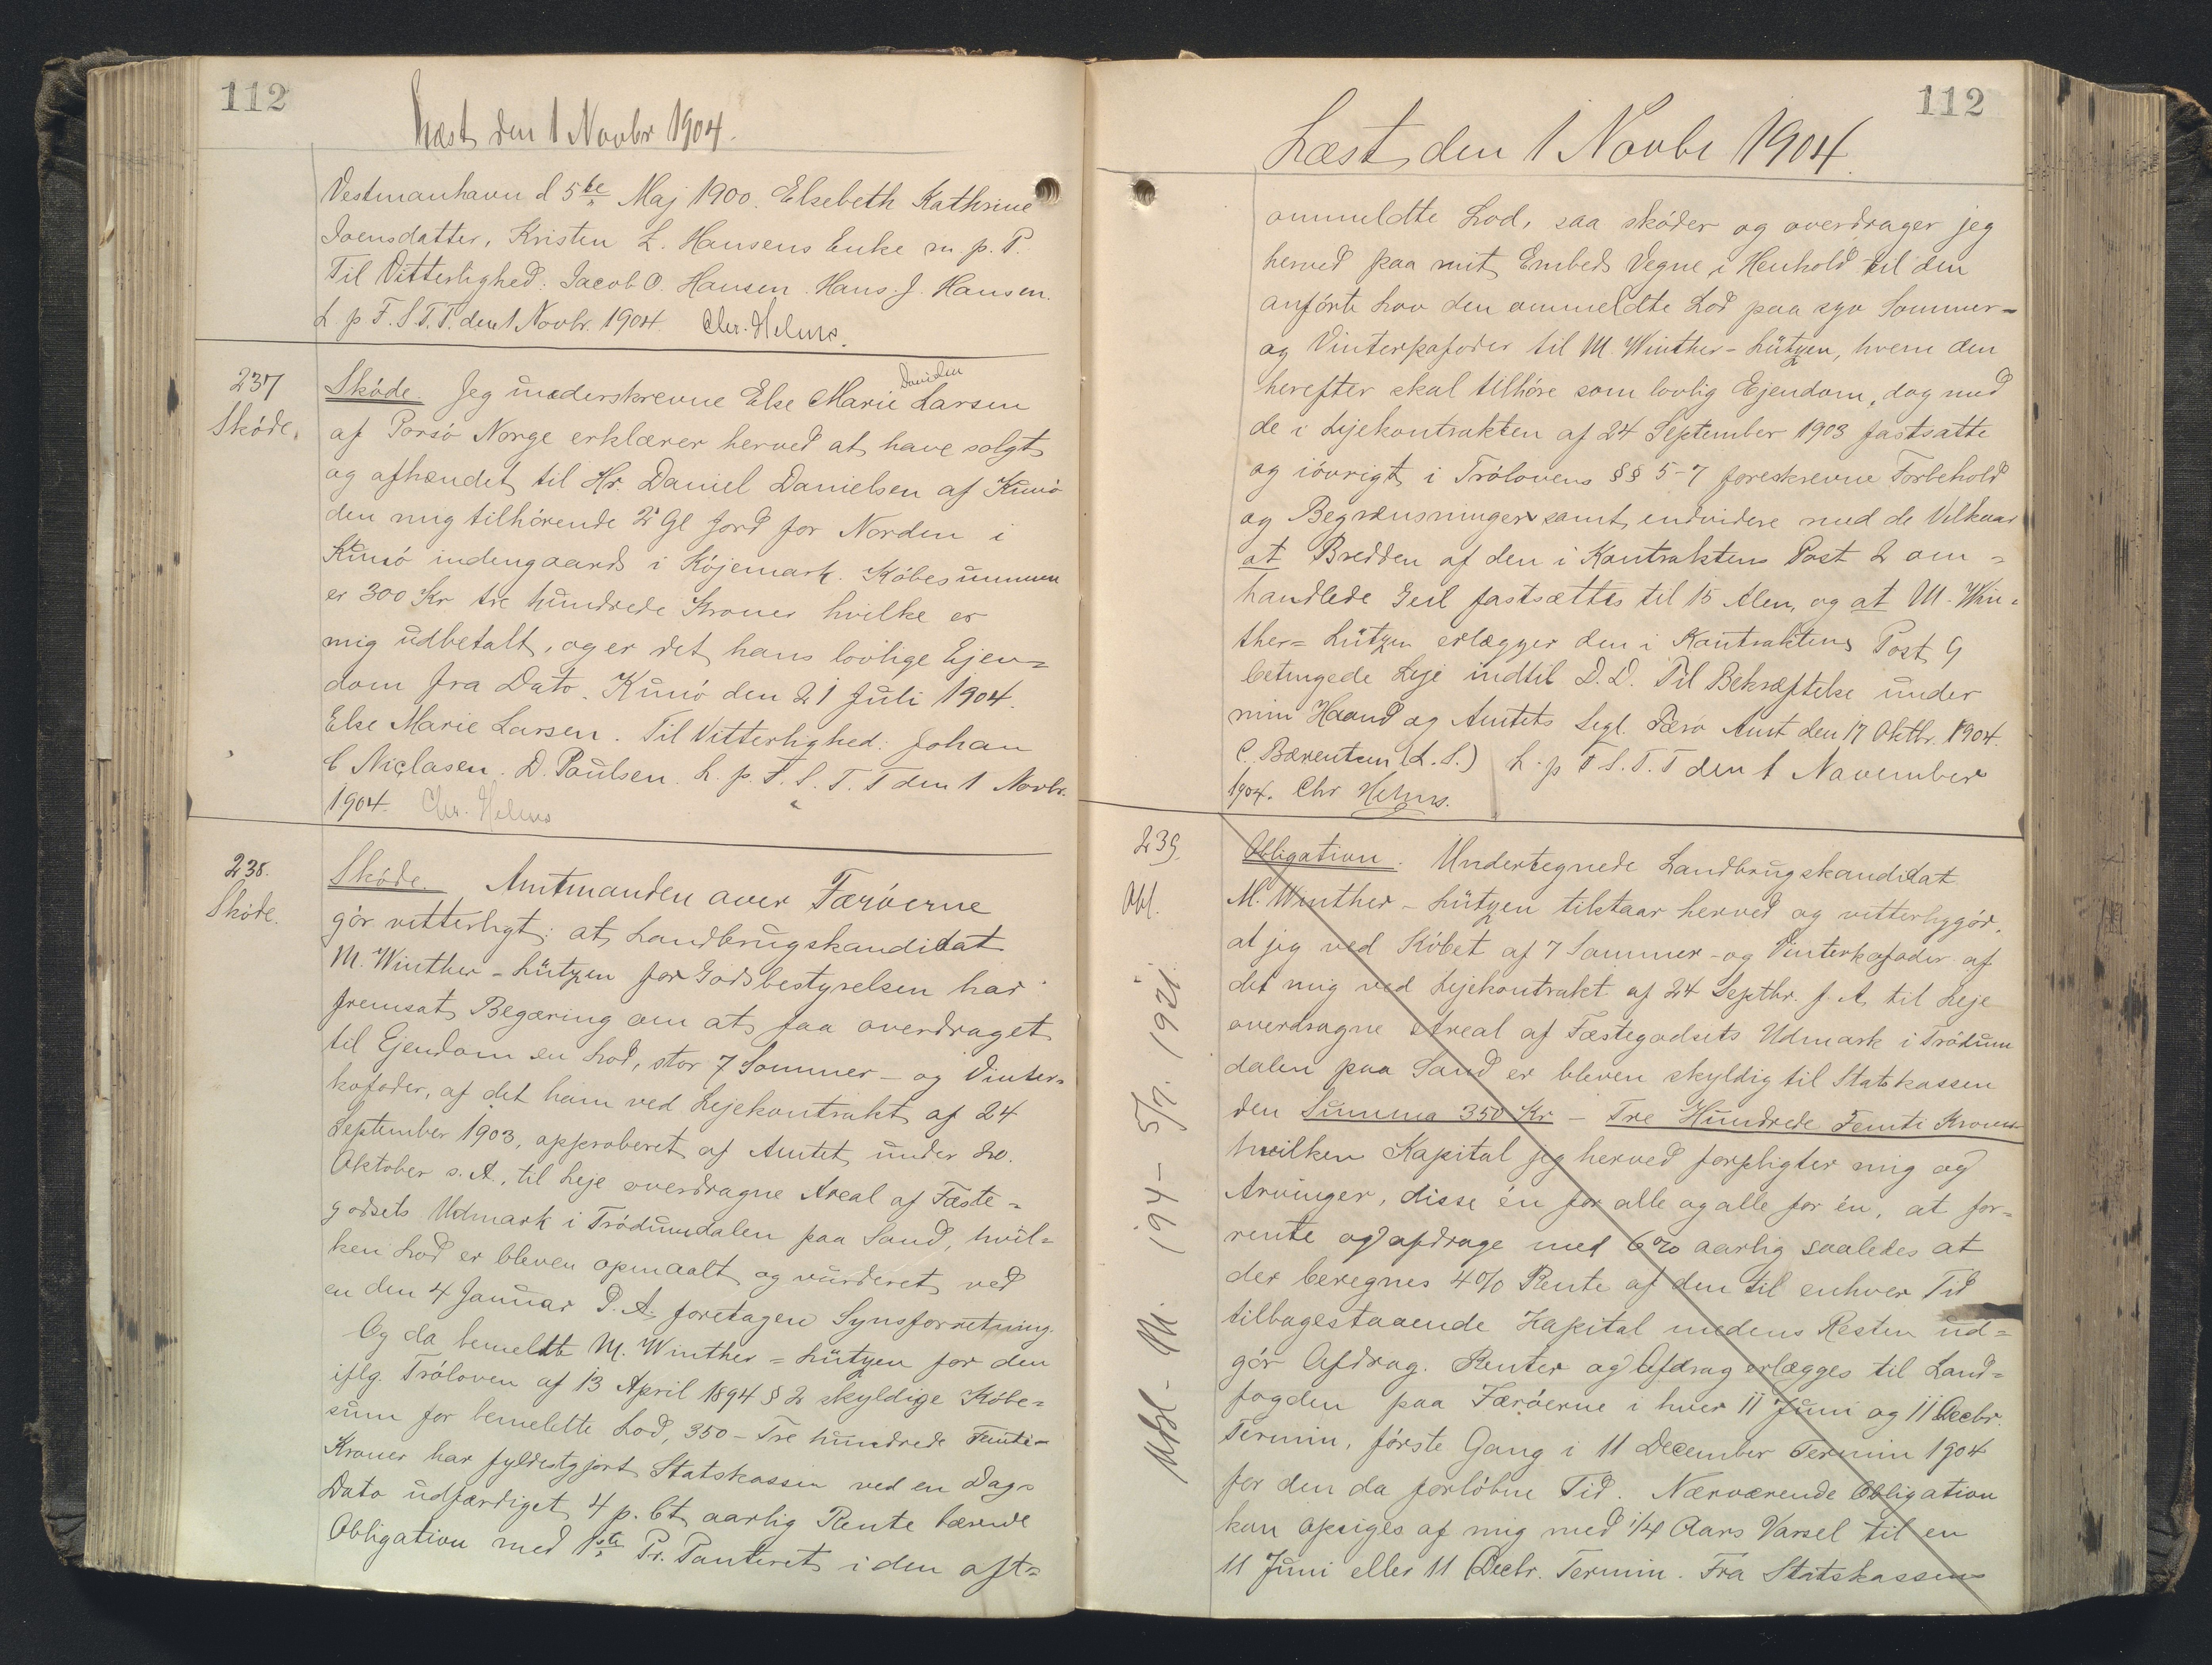 112
Læst den 1 Novbr 1904.
Vestmanhavn d 5te Maj 1900. Elsebeth Kathrine
Joensdatter, Kristen L. Hansens Enke m. p. P.
Til Vitterlighed: Jacob O. Hansen. Hans J. Hansen.
L. p F. S. T. T. den 1 Novbr. 1904. Chr. Helms.
237
Sköde.
Sköde. Jeg underskrevne Else Marie Larsen
af Porsö Norge erklærer herved at have solgt
og afhændet til Hr. Daniel Danielsen af Kunö
den mig tilhörende 2 Gl Jord for Norden i
Kunö indengaards i Köjemark. Köbesummen
er 300 Kr tre hundrede Kroner hvilke er
mig udbetalt, og er det hans lovlige Ejen=
dom fra Dato. Kunö den 21 Juli 1904.
Else Marie Larsen. Til Vitterlighed: Johan
C Niclasen. D. Paulsen. L. p. F. S. T. T den 1 Novbr.
1904. Chr. Helms
238.
Sköde.
Sköde. Amtmanden over Færöerne
gör vitterligt: at Landbrugskandidat
M. Winther-Lützen for Godsbestyrelsen har
fremsat Begæring om at faa overdraget
til Ejendom en Lod, stor 7 Sommer- og Vinter=
kofoder, af det ham ved Lejekontrakt af 24
September 1903, approberet af Amtet under 20.
Oktober s. A., til Leje overdragne Areal af Fæste=
godsets Udmark i Trödumdalen paa Sand, hvil=
ken Lod er bleven opmaalt og vurderet ved
en den 4 Januar D. A. foretagen Synsforretning.
Og da bemeldte M. Winther=Lützen for den
iflg. Tröloven af 13 April 1894 § 2 skyldige Köbe=
sum for bemeldte Lod, 350 - Tre hundrede Femti-
Kroner har fyldestgjort Statskassen ved en Dags
Dato udfærdiget, 4 p. Ct aarlig Rente bærende
Obligation med 1ste Pr. Panteret i den oft=
112
Læst den 1 Novbr 1904.
ommeldte Lod, saa sköder og overdrager jeg
herved paa mit Embeds Vegne i Henhold til den
anförte Lov den ommeldte Lod paa syv Sommer=
og Vinterkofoder til M. Winther-Lützen, hvem den
herefter skal tilhöre som lovlig Ejendom, dog med
de i Lejekontrakten af 24 September 1903 fastsatte
og iövrigt i Trölovens §§ 5-7 foreskrevne Forbehold
og Begrænsninger samt endvidere med de Vilkaar
at Bredden af den i Kontraktens Post 2 om=
handlede Geil fastsættes til 15 Alen, og at M. Win=
ther=Lützen erlægger den i Kontraktens Post 9
betingede Leje indtil D.D. Til Bekræftelse under
min Haand og Amtets Segl. Færö Amt den 17 Oktbr. 1904.
C. Bærentsen (L. S.) L. p F. S. T. T den 1 November
1904. Chr Helms.
239.
Obl.
Obligation. Undertegnede Landbrugskandidat
M. Winther-Lützen tilstaar herved og vitterliggör,
at jeg ved Köbet af 7 Sommer- og Vinterkofoder af
det mig ved Lejekontrakt af 24 Septbr. f. A. til Leje
overdragne Areal af Fæstegodsets Udmark i Trödum
dalen paa Sand er bleven skyldig til Statskassen
den Summa 350 Kr - Tre Hundrede Femti Kroner
hvilken Kapital jeg herved forpligter mig og
Arvinger, disse én for alle og alle for én, at for=
rente og afdrage med 6 % aarlig saaledes at
der beregnes 4 % Rente af den til enhver Tid
tilbagestaaende Kapital medens Resten ud=
gör Afdrag. Renter og Afdrag erlægges til Land=
fogden paa Færöerne i hver 11 Juni og 11 Decbr.
Termin, förste Gang i 11 December Termin 1904
for den da forlöbne Tid. Nærværende Obligation
kan opsiges af mig med 1/4 Aars Varsel til en
11 Juni eller 11 Decbr. Termin. Fra Statskassens